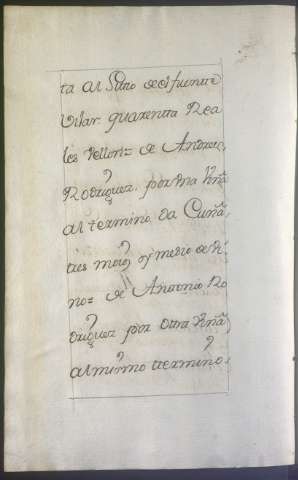 ta al Sitio de el fuente
Vilar. quarenta Rea
les vellon= de Andres
Rodriguez. por Vna Viña
al termino. da Cuña,
tres moios y medio de Vi
no= de Antonio Ro
driguez por otra Viña
al mismo termino.